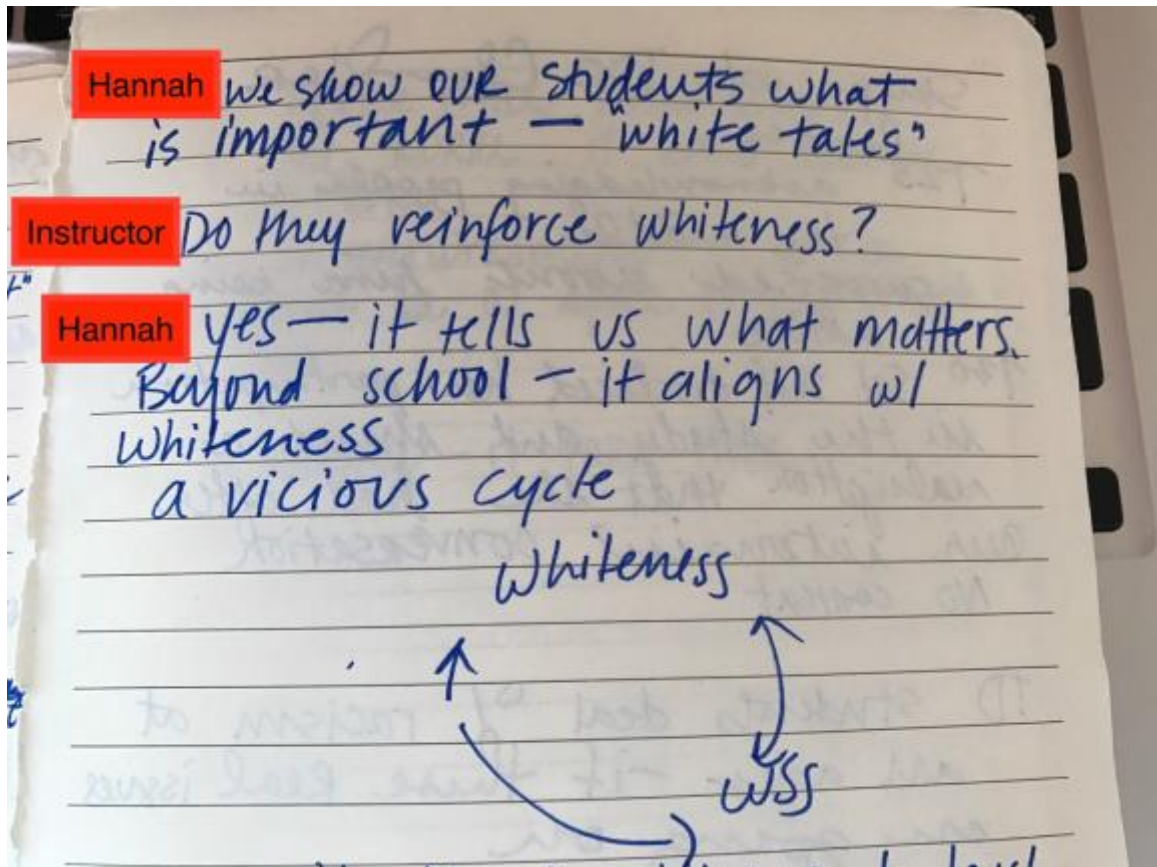 Hannah we show our students what
is important — "white tales"
Instructor Do they reinforce whiteness?
Hannah yes — it tells us what matters.
Beyond school — it aligns w/
whiteness
a vicious cycle
whiteness
WSS